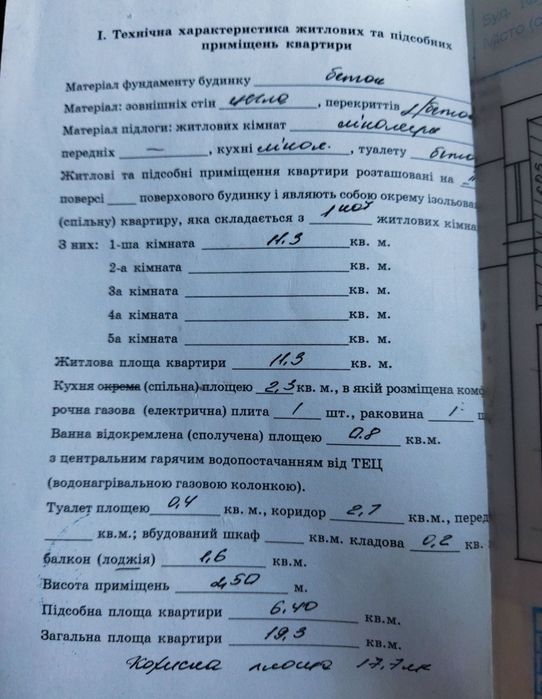 І. Технічна характеристика житлових та підсобних
приміщень квартири
Матеріал фундаменту будинку бетон
Матеріал: зовнішніх стін , перекриттів з/бетон
Матеріал підлоги: житлових кімнат лінолеум
передніх — , кухні лінол. , туалету бетон
Житлові та підсобні приміщення квартири розташовані на
поверсі ____ поверхового будинку і являють собою окрему ізольова
(спільну) квартиру, яка складається з 1 житлових кімна
З них: 1-ша кімната 11.3 кв. м.
2-а кімната ____ кв. м.
3а кімната ____ кв. м.
4а кімната ____ кв. м.
5а кімната ____ кв. м.
Житлова площа квартири 11.3 кв. м.
Кухня окрема (спільна) площею 2,3 кв. м., в якій розміщена комф
рочна газова (електрична) плита 1 шт., раковина 1
Ванна відокремлена (сполучена) площею 0.8 кв.м.
з центральним гарячим водопостачанням від ТЕЦ
(водонагрівальною газовою колонкою).
Туалет площею 0,4 кв. м., коридор 2,7 кв.м., перед
____ кв.м.; вбудований шкаф ____ кв.м. кладова 0,2 кв.
балкон (лоджія) 1,6 кв.м.
Висота приміщень 2,50 м.
Підсобна площа квартири 6,40 кв.м.
Загальна площа квартири 19,3 кв.м.
Корисна площа 17,7